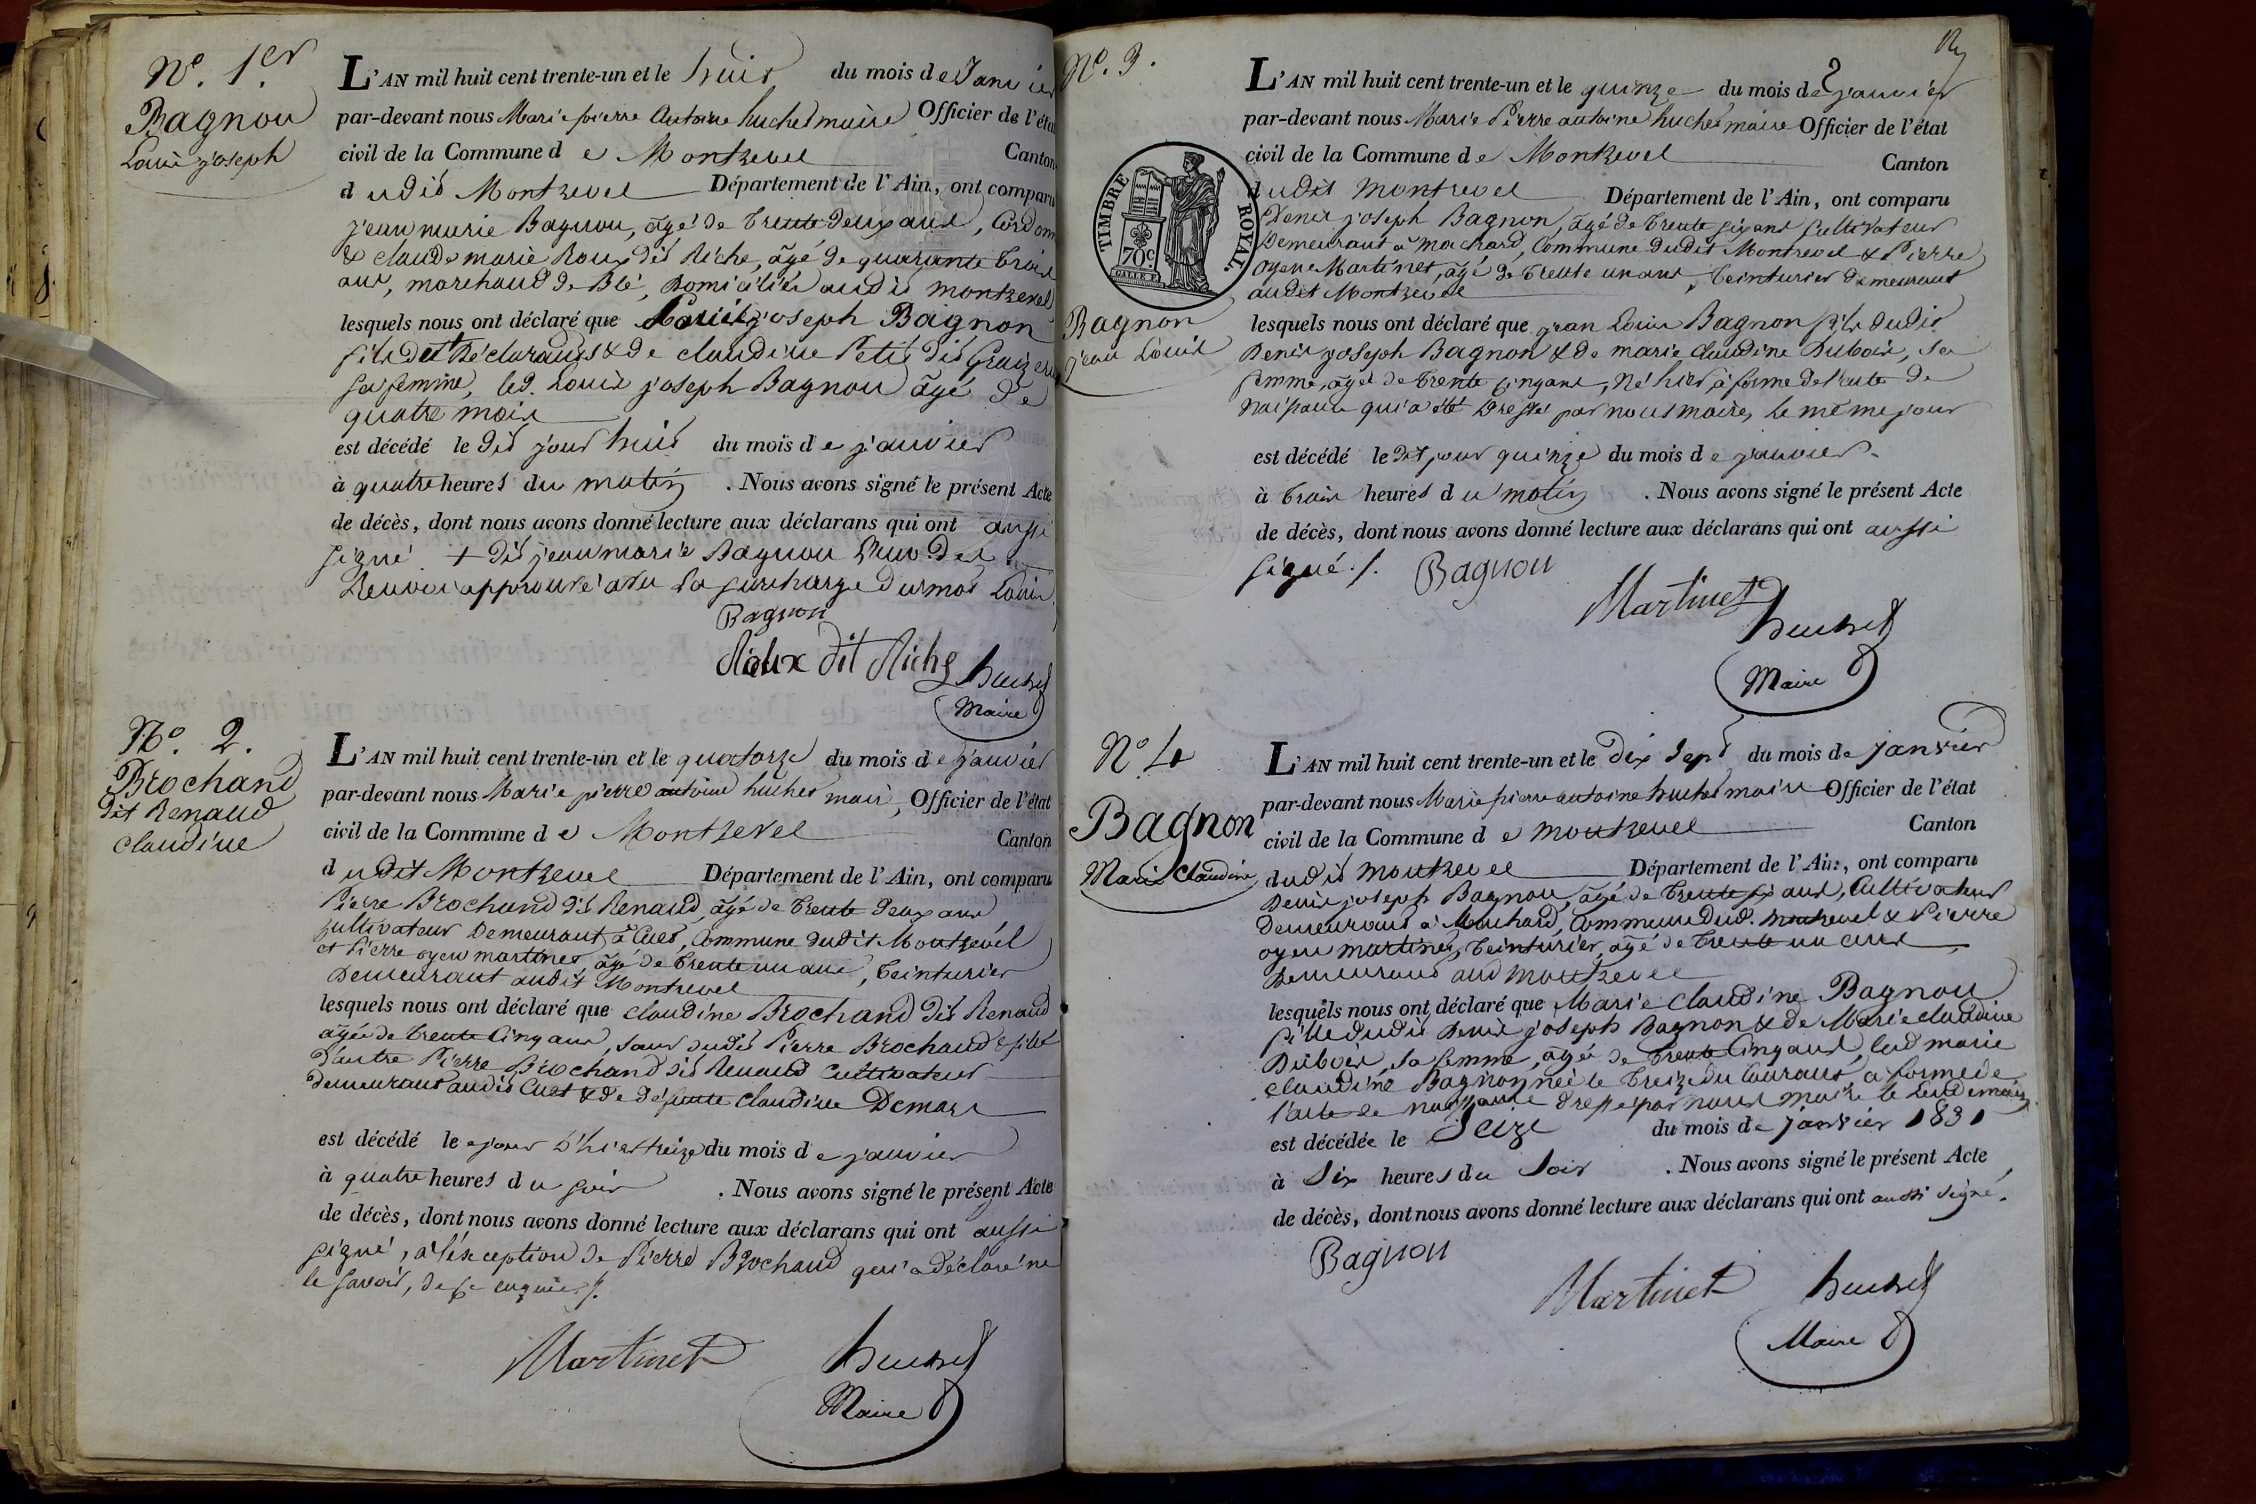 N.º 1.er
Bagnon
Louis joseph
L'AN mil huit cent trente-un et le huit du mois de Janvier
par-devant nous Marie pierre Antoine huchet maire Officier de l'état
civil de la Commune de Montrevel Canton
dudit Montrevel Département de l'Ain, ont comparu
jean marie Bagnon, âgé de trente deux ans,
& claude marie Roux dit Riche, âgé de quarante trois
ans, marchand de Blé, Domiciliés audit montrevel
lesquels nous ont déclaré que Louis joseph Bagnon
fils du Déclarant & de claudine Petit dit
sa femme, led. Louis joseph Bagnon âgé de
quatre mois
est décédé le dit jour huit du mois de janvier
à quatre heures du matin . Nous avons signé le présent Acte
de décès, dont nous avons donné lecture aux déclarans qui ont aussi
signé + dit jean marie Bagnon l'un des
Renvoi approuvé avec la surcharge du mot Louis
Bagnon
Roux dit Riche huchet
Maire
N.º 2.
Brochand
dit Renaud
claudine
L'AN mil huit cent trente-un et le quatorze du mois de janvier
par-devant nous Marie pierre antoine huchet maire, Officier de l'état
civil de la Commune de Montrevel Canton
dudit Montrevel Département de l'Ain, ont comparu
Pierre Brochand dit Renaud, âgé de trente deux ans
cultivateur Demeurant à Cuet, Commune dudit Montrevel
et Pierre oyen martinet âgé de trente un ans, teinturier
Demeurant audit Montrevel
lesquels nous ont déclaré que claudine Brochand dit Renaud
âgée de trente cinq ans, sœur dudit Pierre Brochand & fille
d'autre Pierre Brochand dit Renaud cultivateur
demeurant audit Cuet & de défunte claudine Demare
est décédé le jour d'hier treize du mois de janvier
à quatre heures du soir . Nous avons signé le présent Acte
de décès, dont nous avons donné lecture aux déclarans qui ont aussi
signé, à l'exception de Pierre Brochand qui a déclaré ne
le savoir, de ce enquis ./.
Martinet huchet
Maire
N.º 3.
TIMBRE ROYAL.
70c
Bagnon
jean Louis
L'AN mil huit cent trente-un et le quinze du mois de janvier
par-devant nous Marie Pierre antoine huchet maire Officier de l'état
civil de la Commune de Montrevel Canton
dudit Montrevel Département de l'Ain, ont comparu
Denis joseph Bagnon, âgé de trente six ans Cultivateur
Demeurant à Mochard, Commune dudit Montrevel & Pierre
oyen Martinet, âgé de trente un ans, teinturier demeurant
audit Montrevel
lesquels nous ont déclaré que jean Louis Bagnon fils dudit
Denis joseph Bagnon & de marie claudine Dubois, sa
femme, âgée de trente cinq ans, né hier, à forme de l'acte de
naissance qui a été dressé par nous maire, le même jour
est décédé le dit jour quinze du mois de janvier
à trois heures du matin . Nous avons signé le présent Acte
de décès, dont nous avons donné lecture aux déclarans qui ont aussi
signé ./. Bagnon
Martinet huchet
Maire
N.º 4
Bagnon
Marie Claudine
L'AN mil huit cent trente-un et le Dix Sept du mois de Janvier
par-devant nous Marie pierre antoine huchet maire Officier de l'état
civil de la Commune de montrevel Canton
dudit montrevel Département de l'Ain, ont comparu
Denis joseph Bagnon, âgé de trente six ans, Cultivateur
demeurant à Mochard, Commune dud. montrevel & Pierre
oyen martinet, teinturier, âgé de trente un ans
Demeurant aud montrevel
lesquels nous ont déclaré que Marie Claudine Bagnon
fille dudit Denis joseph Bagnon & de Marie claudine
Dubois, sa femme, âgée de trente cinq ans, lad marie
claudine Bagnon née le treize du courant, à forme de
l'acte de naissance dressé par nous maire le lendemain
est décédée le Seize du mois de janvier 1831
à Six heures du Soir . Nous avons signé le présent Acte
de décès, dont nous avons donné lecture aux déclarans qui ont aussi signé.
Bagnon
Martinet huchet
Maire